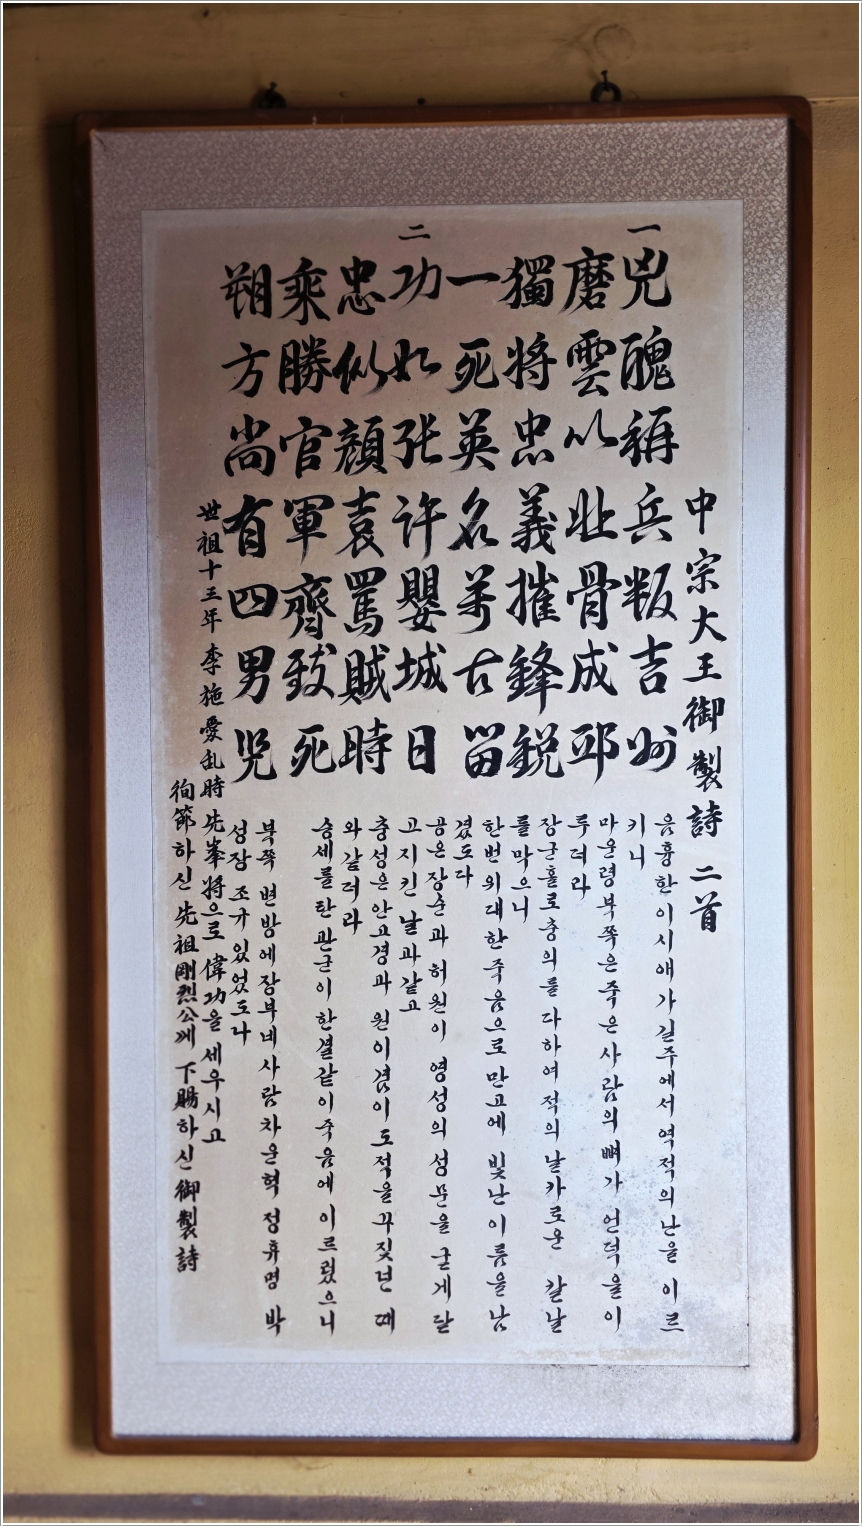 中宗大王御製詩 二首
一
兇醜稱兵叛吉州
磨雲以北骨成邱
獨將忠義摧鋒銳
一死英名萬古留
二
功如张许嬰城日
忠似顔袁罵賊時
乘勝官軍齊致死
朔方尚有四男児
음흉한 이시애가 길주에서 역적의 난을 이르
키니
마운령 북쪽은 죽은 사람의 뼈가 언덕을 이
루더라
장군홀로 충의를 다하여 적의 날카로운 칼날
를 막으니
한번 위대한 죽음으로 만고에 빛난 이름을 남
겼도다
공은 장순과 허원이 영성의 성문을 굳게 닫
고 지킨 날과 같고
충성은 안고경과 원이겸이 도적을 꾸짖던 때
와 같더라
승세를 탄 관군이 한결같이 죽음에 이르렀으니
북쪽 변방에 장부네사람 차운혁 정휴명 박
성장 조규 있었도다
世祖十三年 李施愛乱時 先峯將으로 偉功을 세우시고
徇節하신 先祖 剛烈公께 下賜하신 御製詩